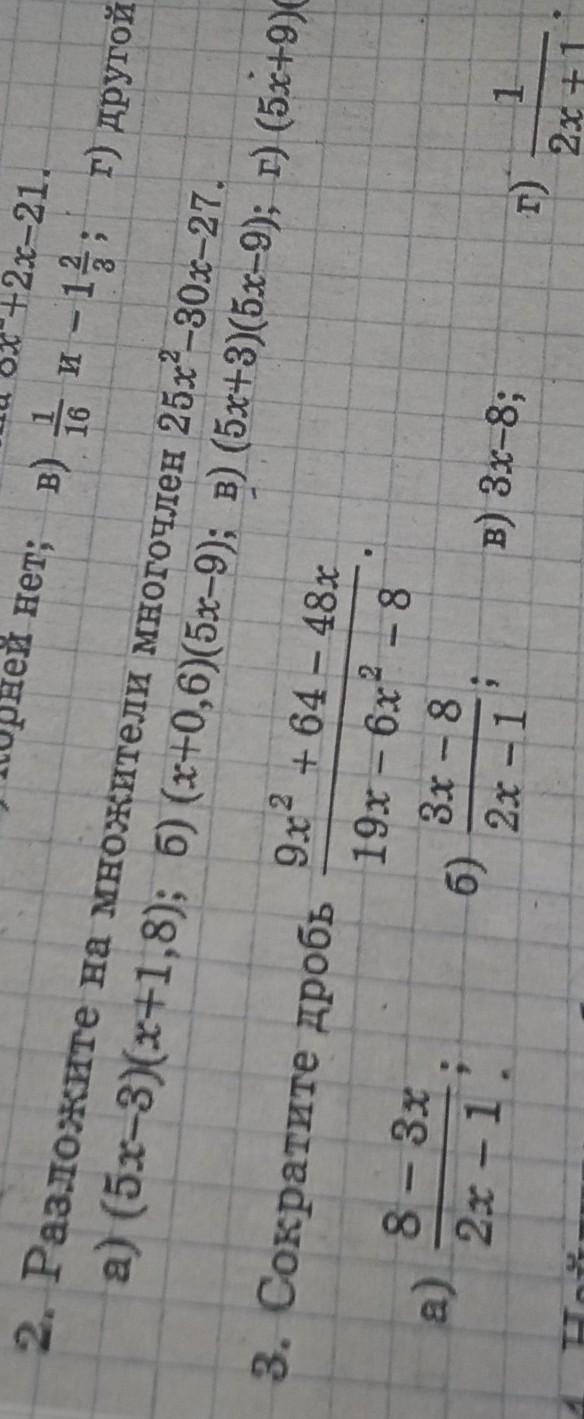 8x²+2x−21.
корней нет; в) 1/16 и −1 2/3; г) другой
2. Разложите на множители многочлен 25x²−30x−27.
а) (5x−3)(x+1,8); б) (x+0,6)(5x−9); в) (5x+3)(5x−9); г) (5x+9)(
3. Сократите дробь (9x² + 64 − 48x)/(19x − 6x² − 8).
а) (8 − 3x)/(2x − 1); б) (3x − 8)/(2x − 1); в) 3x−8; г) 1/(2x + 1).